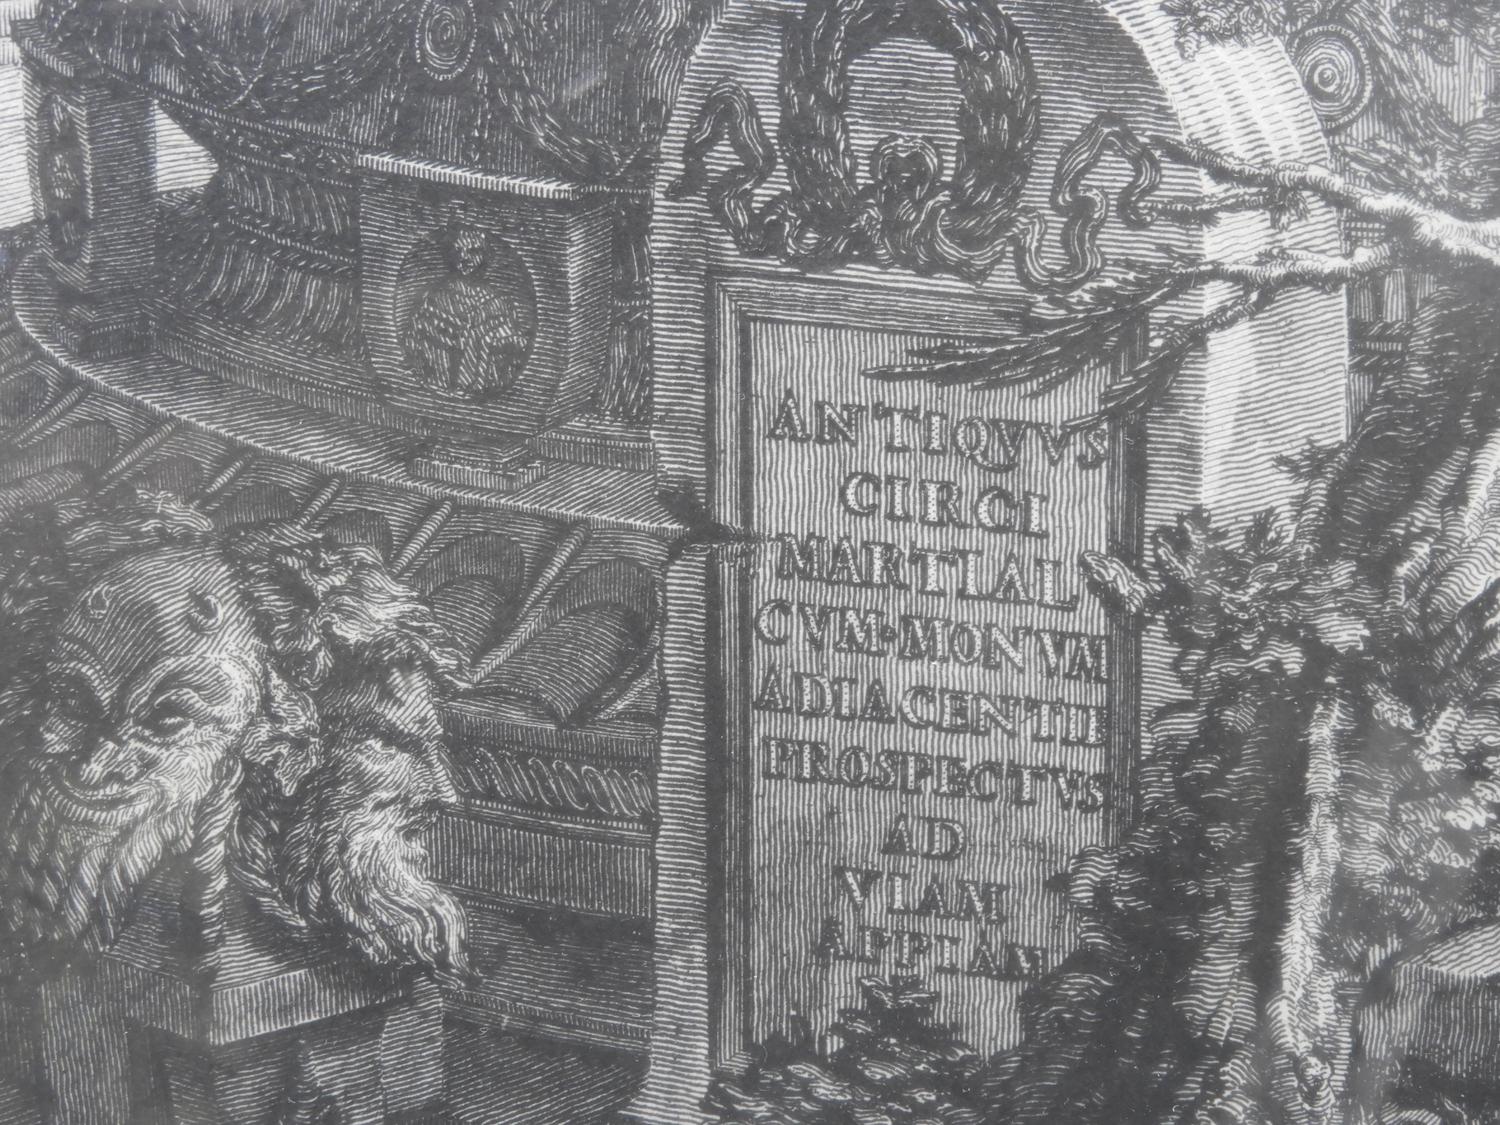 ANTIQVVS
CIRCI
MARTIAL
CVM·MONVM
ADIACENTII
PROSPECTVS
AD
VIAM
APPIAM